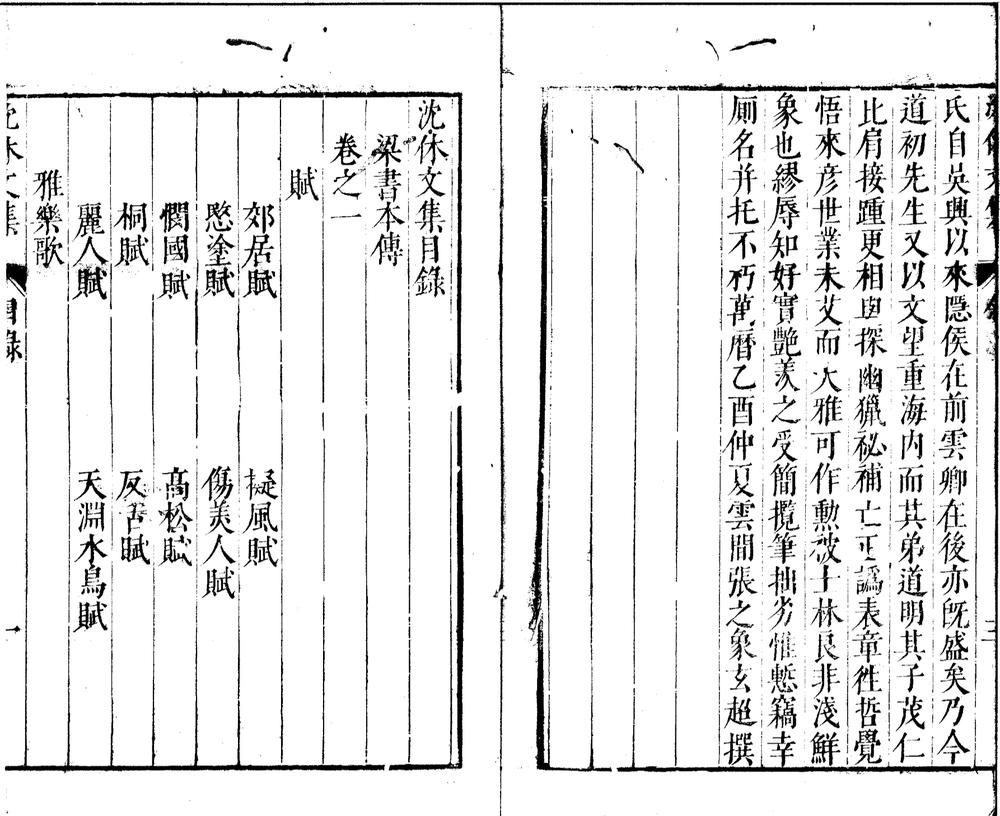 氏自吳興以來隱侯在前雲卿在後亦旣盛矣乃今
道初先生又以文望重海内而其弟道明其子茂仁
比肩接踵更相與探幽獵祕補亡正譌表章徃哲覺
悟來彦世業未艾而大雅可作勲被士林良非淺鮮
象也繆辱知好實艷羨之受簡攬筆拙劣惟慙竊幸
厠名并托不朽萬曆乙酉仲夏雲間張之象玄超撰
三
沈休文集目錄
梁書本傳
卷之一
賦
郊居賦 擬風賦
愍塗賦 傷美人賦
憫國賦 高松賦
桐賦 反舌賦
麗人賦 天淵水鳥賦
雅樂歌
沈休文集 目錄 一